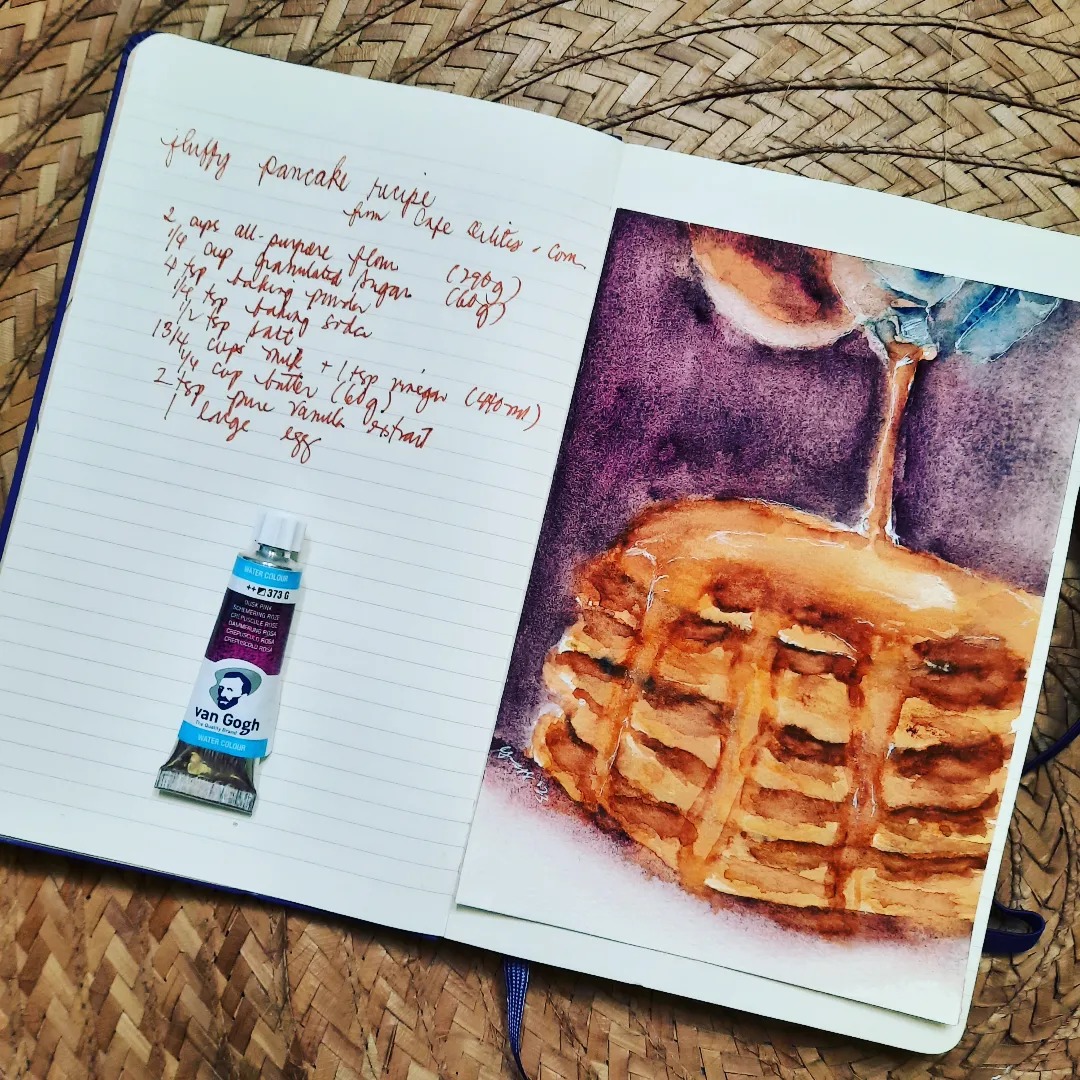 fluffy pancake recipe
from Cafe Delites . com
2 cups all-purpose flour (290g)
1/4 cup granulated sugar (60g)
4 tsp baking powder
1/4 tsp baking soda
1/2 tsp salt
1 3/4 cups milk + 1 tsp vinegar (440ml)
1/4 cup butter (60g)
2 tsp pure vanilla extract
1 large egg
WATER COLOUR
++ 373 G
DUSK PINK
SCHEMERING ROZE
CRÉPUSCULE ROSE
DÄMMERUNG ROSA
CREPUSCOLO ROSA
CREPÚSCULO ROSA
van Gogh
The Quality Brand
WATER COLOUR